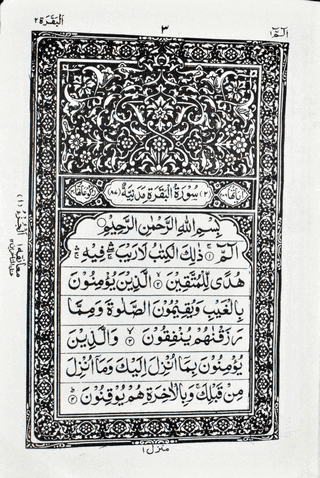 الٓمّٓ ١
٣
اَلْبَقَرَة ٢
(٢) سُوْرَةُ الْبَقَرَةِ مَدَنِيَّةٌ (٨٧)
بِسْمِ اللّٰهِ الرَّحْمٰنِ الرَّحِيْمِ
الٓمّٓ ۚ ١ ذٰلِكَ الْكِتٰبُ لَا رَيْبَ ۛ فِيْهِ ۛ
هُدًى لِّلْمُتَّقِيْنَ ۙ ٢ الَّذِيْنَ يُؤْمِنُوْنَ
بِالْغَيْبِ وَيُقِيْمُوْنَ الصَّلٰوةَ وَمِمَّا
رَزَقْنٰهُمْ يُنْفِقُوْنَ ۙ ٣ وَالَّذِيْنَ
يُؤْمِنُوْنَ بِمَآ اُنْزِلَ اِلَيْكَ وَمَآ اُنْزِلَ
مِنْ قَبْلِكَ ۚ وَبِالْاٰخِرَةِ هُمْ يُوْقِنُوْنَ ؕ ٤
منزل ١